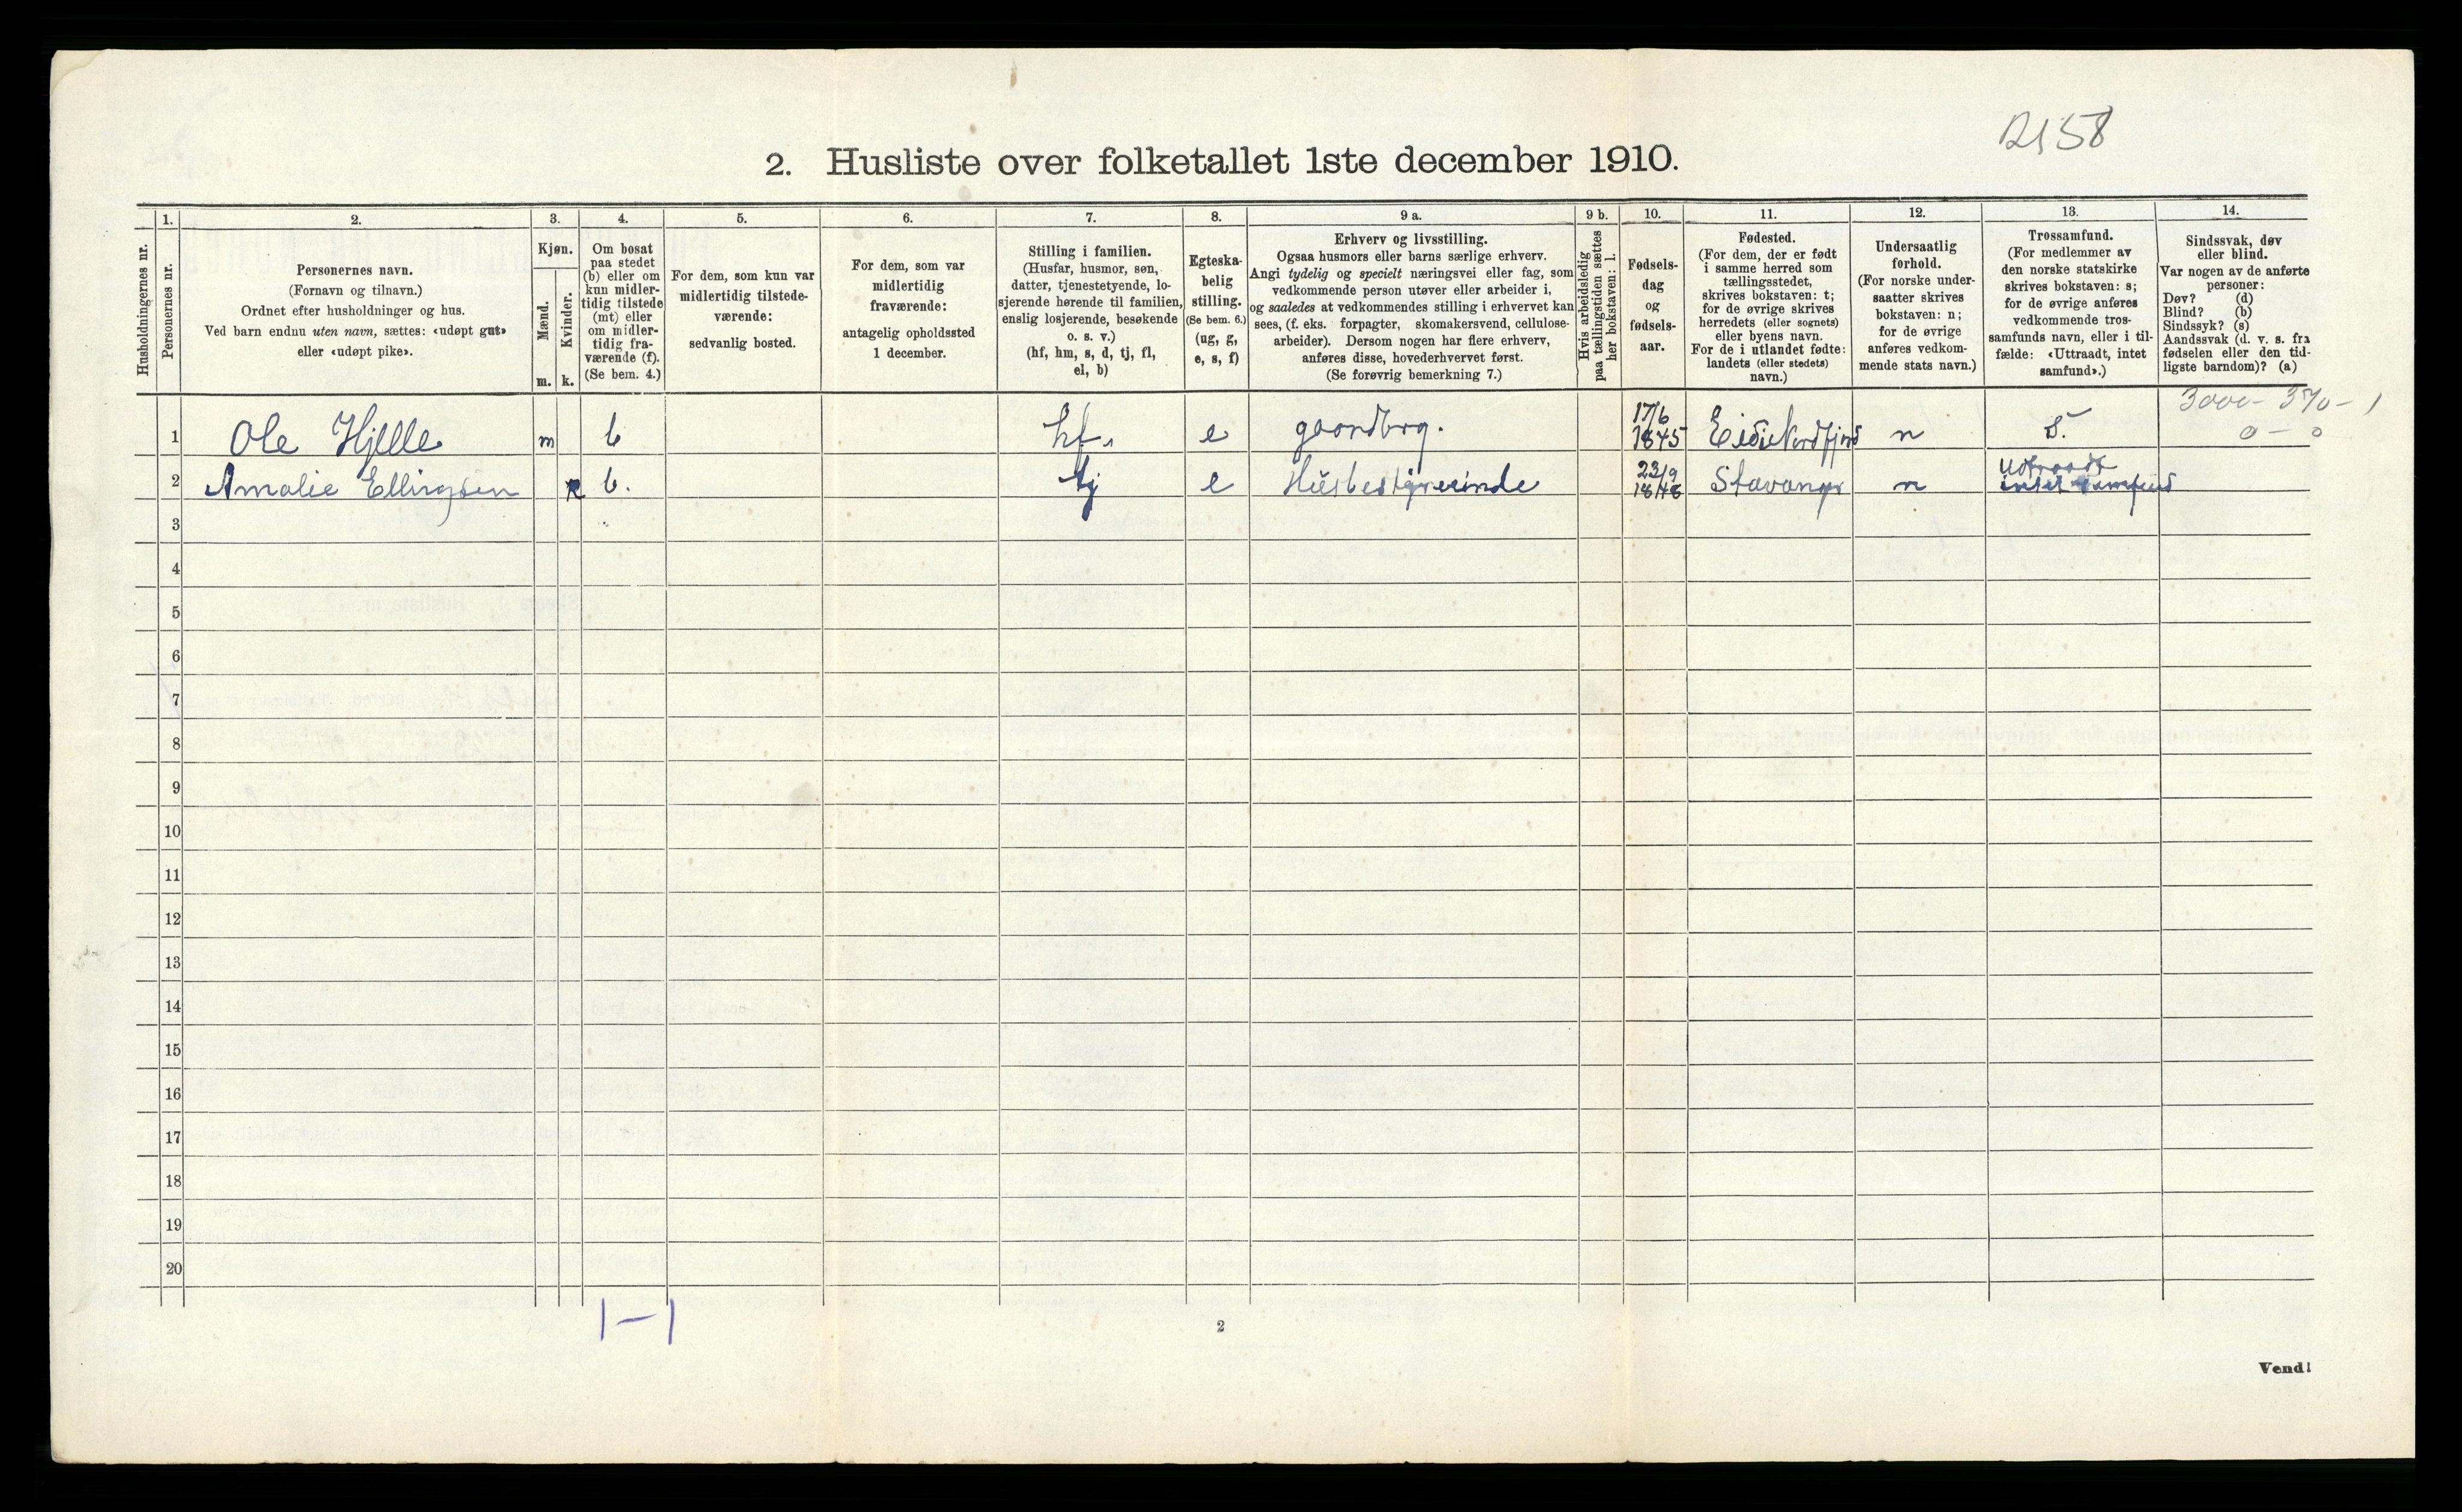 2158
2. Husliste over folketallet 1ste december 1910.
Husholdningernes nr.
1.
Personernes nr.
2.
Personernes navn.
(Fornavn og tilnavn.)
Ordnet efter husholdninger og hus.
Ved barn endnu uten navn, sættes: «udøpt gut»
eller «udøpt pike».
3.
Kjøn.
Mænd.
m.
Kvinder.
k.
4.
Om bosat
paa stedet
(b) eller om
kun midler-
tidig tilstede
(mt) eller
om midler-
tidig fra-
værende (f).
(Se bem. 4.)
5.
For dem, som kun var
midlertidig tilstede-
værende:
sedvanlig bosted.
6.
For dem, som var
midlertidig
fraværende:
antagelig opholdssted
1 december.
7.
Stilling i familien.
(Husfar, husmor, søn,
datter, tjenestetyende, lo-
sjerende hørende til familien,
enslig losjerende, besøkende
o. s. v.)
(hf, hm, s, d, tj, fl,
el, b)
8.
Egteska-
belig
stilling.
(Se bem. 6.)
(ug, g,
e, s, f)
9 a.
Erhverv og livsstilling.
Ogsaa husmors eller barns særlige erhverv.
Angi tydelig og specielt næringsvei eller fag, som
vedkommende person utøver eller arbeider i,
og saaledes at vedkommendes stilling i erhvervet kan
sees, (f. eks. forpagter, skomakersvend, cellulose-
arbeider). Dersom nogen har flere erhverv,
anføres disse, hovederhvervet først.
(Se forøvrig bemerkning 7.)
9 b.
Hvis arbeidsledig
paa tællingstiden sættes
her bokstaven: l.
10.
Fødsels-
dag
og
fødsels-
aar.
11.
Fødested.
(For dem, der er født
i samme herred som
tællingsstedet,
skrives bokstaven: t;
for de øvrige skrives
herredets (eller sognets)
eller byens navn.
For de i utlandet fødte:
landets (eller stedets)
navn.)
12.
Undersaatlig
forhold.
(For norske under-
saatter skrives
bokstaven: n;
for de øvrige
anføres vedkom-
mende stats navn.)
13.
Trossamfund.
(For medlemmer av
den norske statskirke
skrives bokstaven: s;
for de øvrige anføres
vedkommende tros-
samfunds navn, eller i til-
fælde: «Uttraadt, intet
samfund».)
14.
Sindssvak, døv
eller blind.
Var nogen av de anførte
personer:
Døv? (d)
Blind? (b)
Sindssyk? (s)
Aandssvak (d. v. s. fra
fødselen eller den tid-
ligste barndom)? (a)
3000 - 370 - 1
0 - 0
1 Ole Hjelle m b hf. e gaardbrg. 17/6 1845 Eid i Nordfjord n S.
2 Amalie Ellingsen k b. tj e Husbestyrerinde 23/9 1848 Stavanger n Udtraadt intet samfund
3
4
5
6
7
8
9
10
11
12
13
14
15
16
17
18
19
20
1-1
2
Vend!